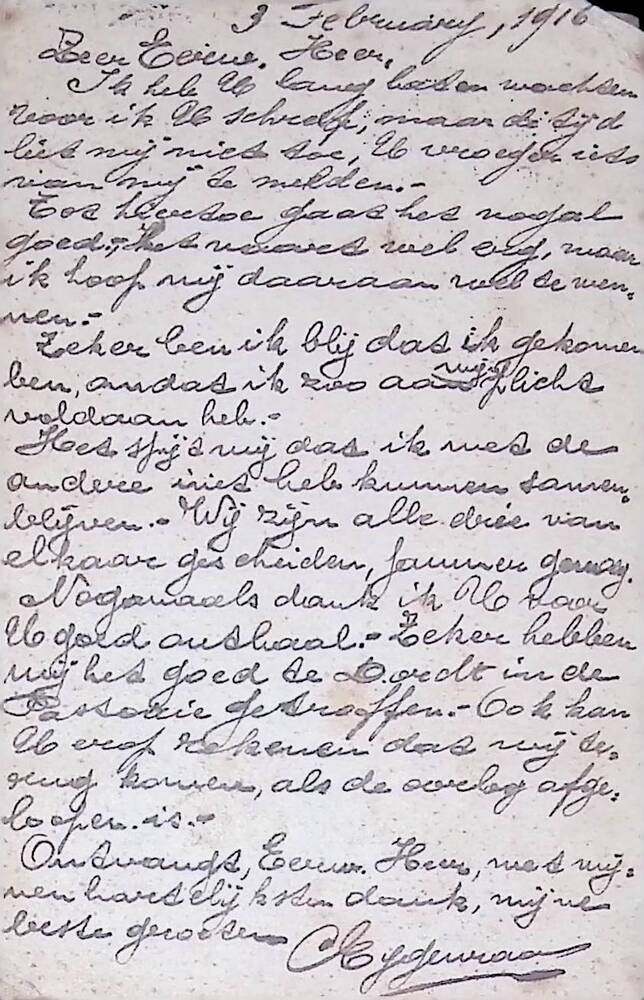 3 February, 1916
Zeer Eerw. Heer,
Ik heb U lang laten wachten
voor ik U schreef, maar de tijd
liet mij niet toe, U vroeger iets
van mij te melden.-
Tot hiertoe gaat het nogal
goed.- Het vriest wel erg, maar
ik hoop mij daaraan wel te wen-
nen.-
Zeker ben ik blij dat ik gekomen
ben, omdat ik zoo aan mijn plicht
voldaan heb.-
Het spijt mij dat ik met de
andere niet heb kunnen samen-
blijven.- Wij zijn alle drie van
elkaar gescheiden, jammer genoeg.
Nogmaals dank ik U voor
U goed onthaal.- Zeker hebben
wij het goed te Dordt in de
Pastorie getroffen.- Ook kan
U erop rekenen dat wij te-
rug komen, als de oorlog afge-
loopen is.-
Ontvangt, Eerw. Heer, met mij-
nen hartelijksten dank, mijne
beste groeten